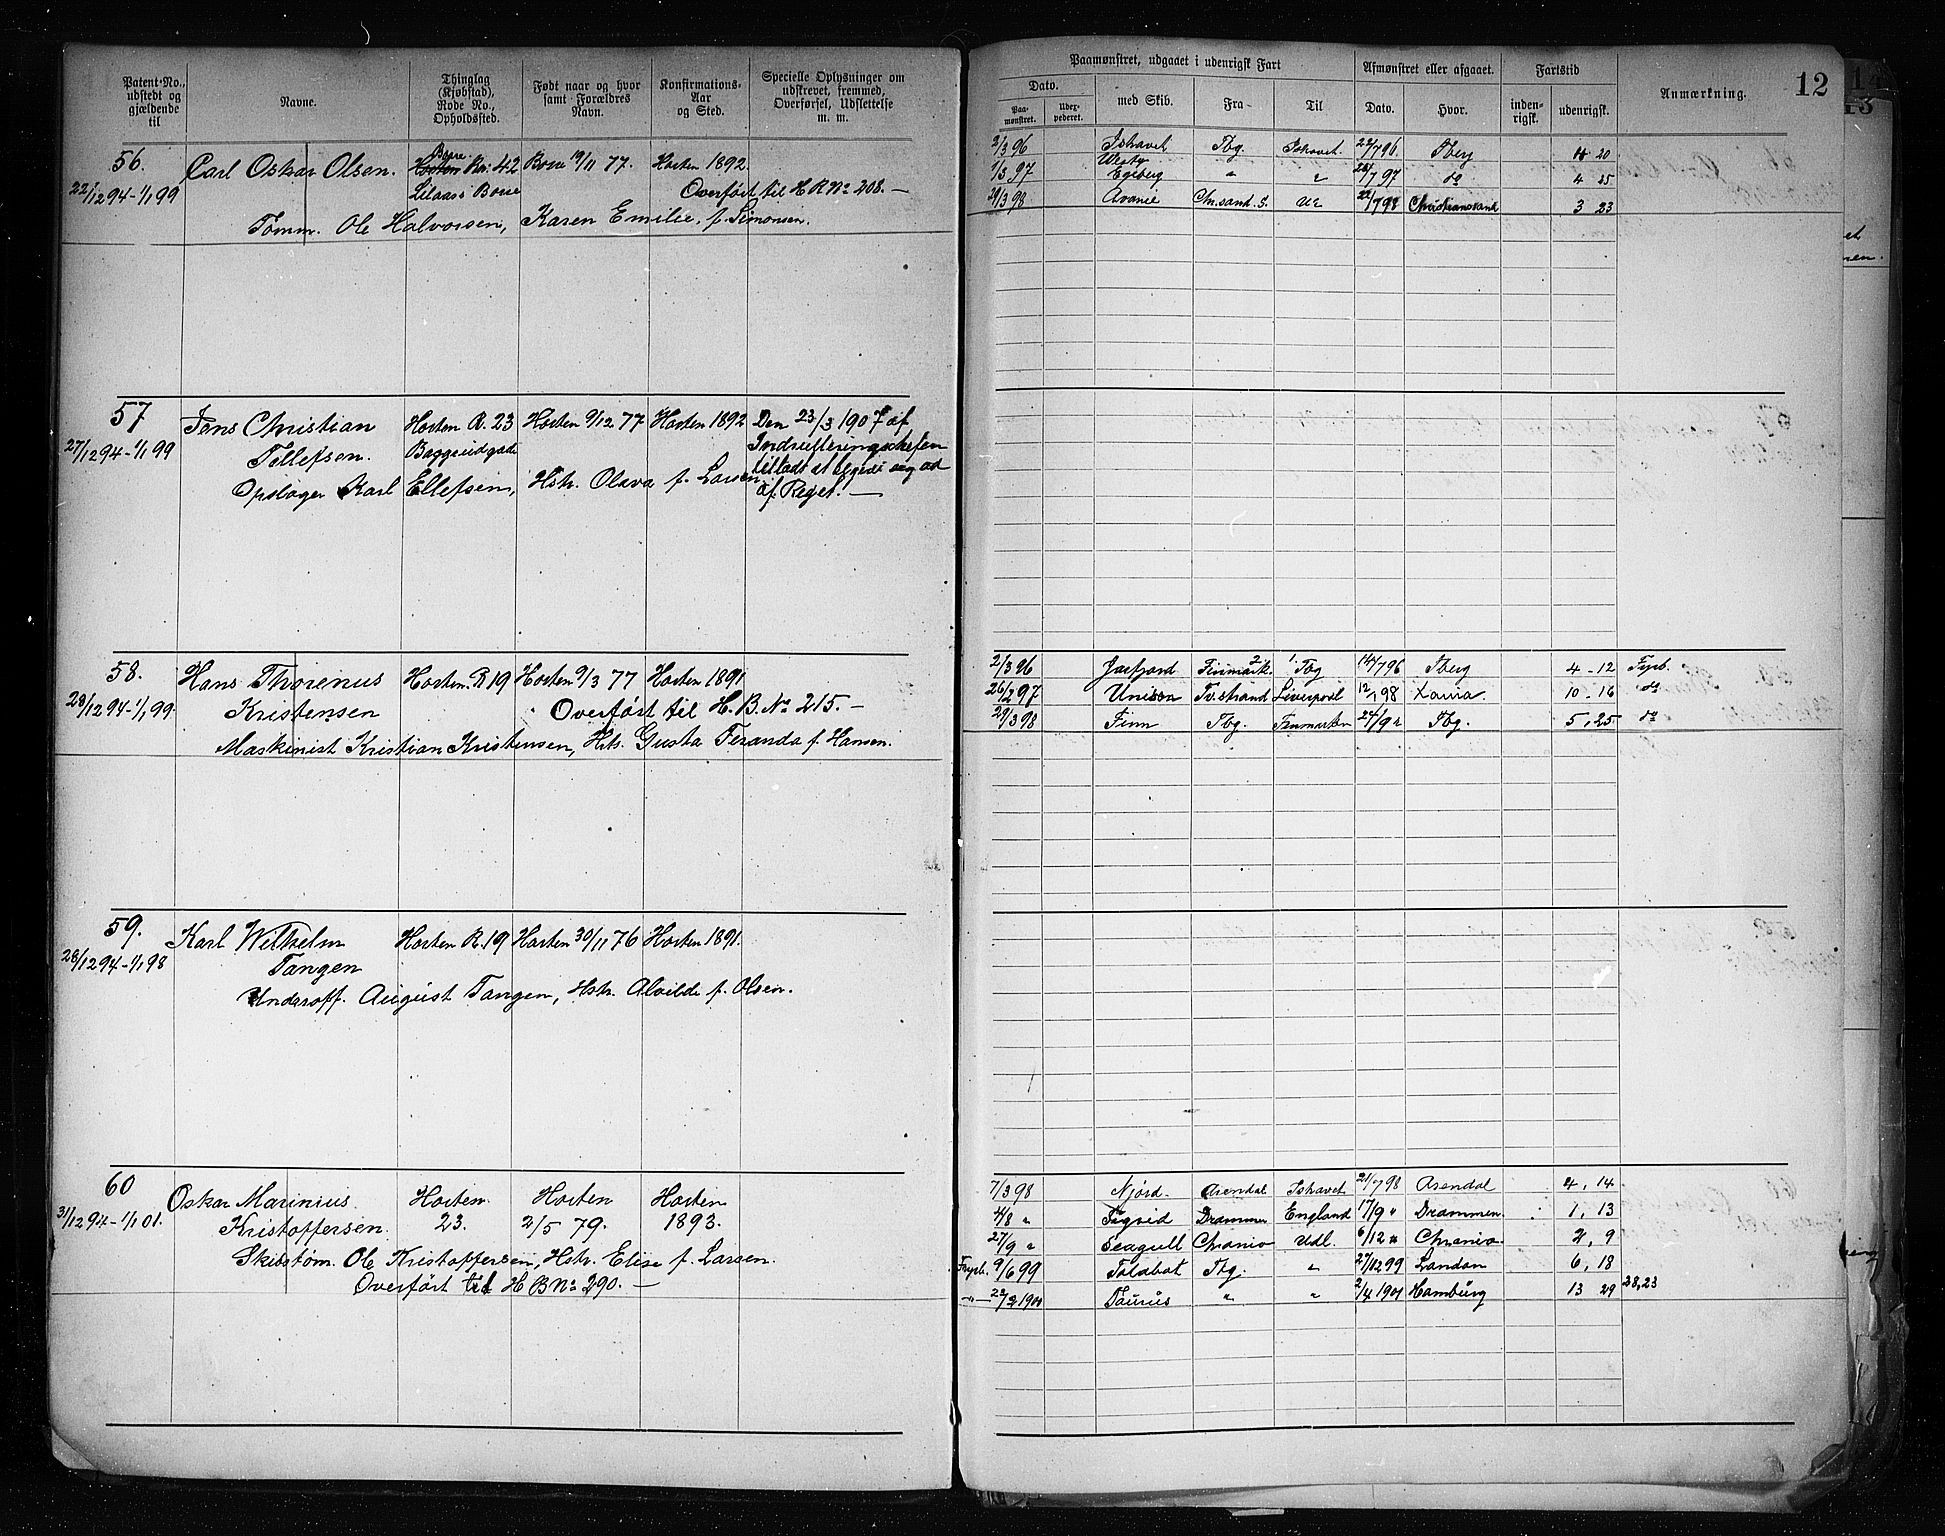 Patent-No., udstedt og gjældende til
Navne.
Thinglag (Kjøbstad), Rode No., Opholdssted.
Født naar og hvor samt Forældres Navn.
Konfirmations-Aar og Sted.
Specielle Oplysninger om udskrevet, fremmed, Overførsel, Udslettelse m. m.
Paamønstret, udgaaet i udenrigsk Fart
Afmønstret eller afgaaet.
Fartstid
Anmærkning.
12
Dato.
med Skib.
Fra
Til
Dato.
Hvor.
inden-rigsk.
udenrigsk.
Paa-mønstret.
Udex-pederet.
56. Carl Oskar Olsen. Borre Horten No. 42 Borre 19/11 77. Horten 1892.
22/12 94-1/1 99 Borre Overført til H R No 208. —
Tømm. Ole Halvorsen, Karen Emilie, f. Simonsen.
2/3 96 Ishavet Tbg. Ishavet. 22/7 96. Tberg 4 20
1/3 97 Egeberg " " 28/7 97 do 4 25
Chr.sand. S. 22/7 98 Christianssand 3 23
57 Jens Christian Horten R. 23 Horten 9/12 77 Horten 1892 Den 23/3 1907 af
27/12 94-1/1 99 Tellefsen.
tilladt at
Opslager Karl Ellefsen, Hstr. Olava f. Larsen af Regst. —
58. Hans Thorenus Horten. R 19 Horten 9/3 77 Horten 1891
28/12 94-1/1 99. Kristensen Overført til H. B. No 215. —
Maskinist Kristian Kristensen, Hstr. Gusta Feranda f. Hansen.
2/3 96 Jarfjord Finmark. Tbg 14/7 96 Tberg 4-12 Fyrb.
26/2 97 Unison Tv.strand Liverpool 12/1 98 10-16 do
29/3 98 Finn Tbg. Finmarken Tbg. 5,25 do
59. Karl Wilhelm Horten R. 19 Horten 30/11 76 Horten 1891.
28/12 94-1/1 98 Tangen
Underoff. August Tangen, Hstr. Alvilde f. Olsen.
60 Oskar Marinius Horten. Horten Horten
31/12 94-1/1 01. Kristoffersen. 23. 2/5 79. 1893.
Skibstøm. Ole Kristoffersen, Hstr. Elise f. Larsen.
Overført til H B No 290. —
7/3 98 Njörd. Arendal Ishavet 21/7 98 Arendal 4, 14
4/8 " Sigrid Drammen England 17/9 " Drammen. 1, 13
27/9 " Seagull Chrania Udl. 6/12 " Chrania. 2, 9
Fyrb. 9/6 99 Talabot Tbg. " 27/12 99 London 6, 18
—"— 22/2 1900 Taurus " " 2/4 1901 Hamburg 13 29 28,23